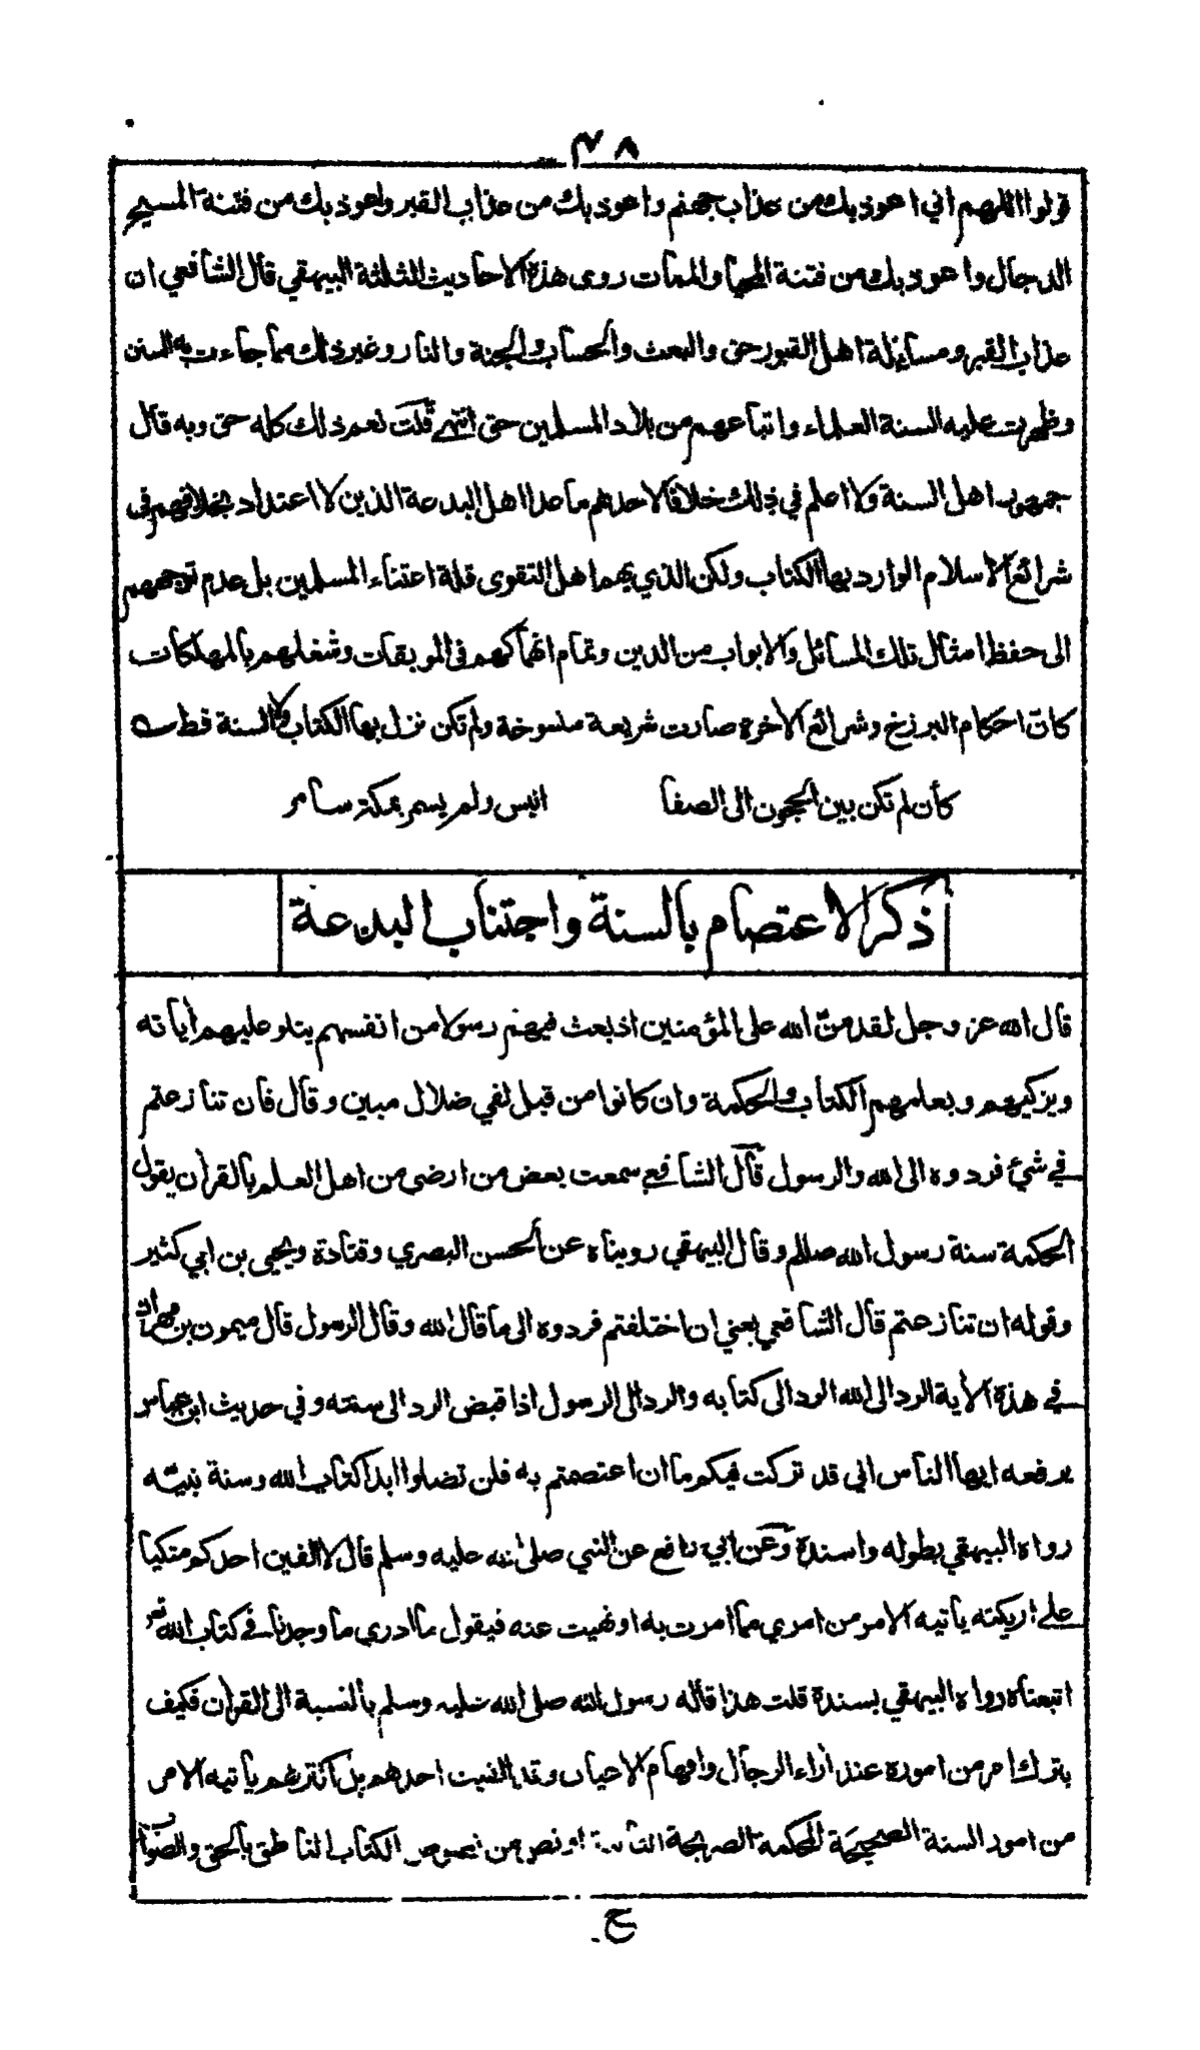 ٣٨
قولوا اللهم اني اعوذ بك من عذاب جهنم واعوذ بك من عذاب القبر واعوذ بك من فتنة المسيح
الدجال واعوذ بك من فتنة المحيا والممات روى هذه الاحاديث الثلثة البيهقي قال الشافعي ان
عذاب القبر ومسايلة اهل القبور حق والبعث والحساب والجنة والنار وغير ذلك مما جاءت به السنن
وظهرت عليه السنة العلماء واتباعهم من بلاد المسلمين حق انتهى قلت نعم ذلك كله حق وبه قال
جمهور اهل السنة ولا اعلم في ذلك خلافا لاحدهم ما عدا اهل البدعة الذين لا اعتداد بخلافهم في
شرائع الاسلام الوارد بها الكتاب ولكن الذي يهم اهل التقوى قلة اعتناء المسلمين بل عدم توجههم
الى حفظ امثال تلك المسائل والابواب من الدين وتمام انهماكهم في الموبقات وشغلهم بالمهلكات
كانّ احكام البرزخ وشرائع الاخرة صارت شريعة منسوخة ولم تكن نزل بها الكتاب ولا السنة قط
كأن لم تكن بين الحجون الى الصفا انيس ولم يسمر بمكة سامر
ذكر الاعتصام بالسنة واجتناب البدعة
قال الله عز وجل لقد منّ الله على المؤمنين اذ بعث فيهم رسولا من انفسهم يتلو عليهم أياته
ويزكيهم ويعلمهم الكتاب والحكمة وان كانوا من قبل لفي ضلال مبين وقال فان تنازعتم
في شيء فردوه الى الله والرسول قال الشافعي سمعت بعض من ارضى من اهل العلم بالقرأن يقول
الحكمة سنة رسول الله صللم وقال البيهقي رويناه عن الحسن البصري وقتادة ويحيى بن ابي كثير
وقوله ان تنازعتم قال الشافعي يعني ان اختلفتم فردوه الى ما قال الله وقال الرسول قال ميمون بن مهران
في هذه الأية الرد الى الله الرد الى كتابه والرد الى الرسول اذا قبض الرد الى سنته وفي حديث ابن عباس
يرفعه ايها الناس اني قد تركت فيكم ما ان اعتصمتم به فلن تضلوا ابدا كتاب الله وسنة نبيّه
رواه البيهقي بطوله واسنده وعن ابي رافع عن النبي صلى الله عليه وسلم قال لا الفين احدكم متكيا
على اريكته يأتيه الامر من امري مما امرت به او نهيت عنه فيقول ما ادري ما وجدنا في كتاب الله تعر
اتبعناه رواه البيهقي بسنده قلت هذا قاله رسول الله صلى الله عليه وسلم بالنسبة الى القرأن فكيف
بترك امر من اموره عند أراء الرجال وافهام الاحبار وقد الفيت احدهم بل اكثرهم يأتيه الامر
من امور السنة الصحيحة المحكمة الصريحة او نص من نصوص الكتاب الناطق بالحق والصواب
ح